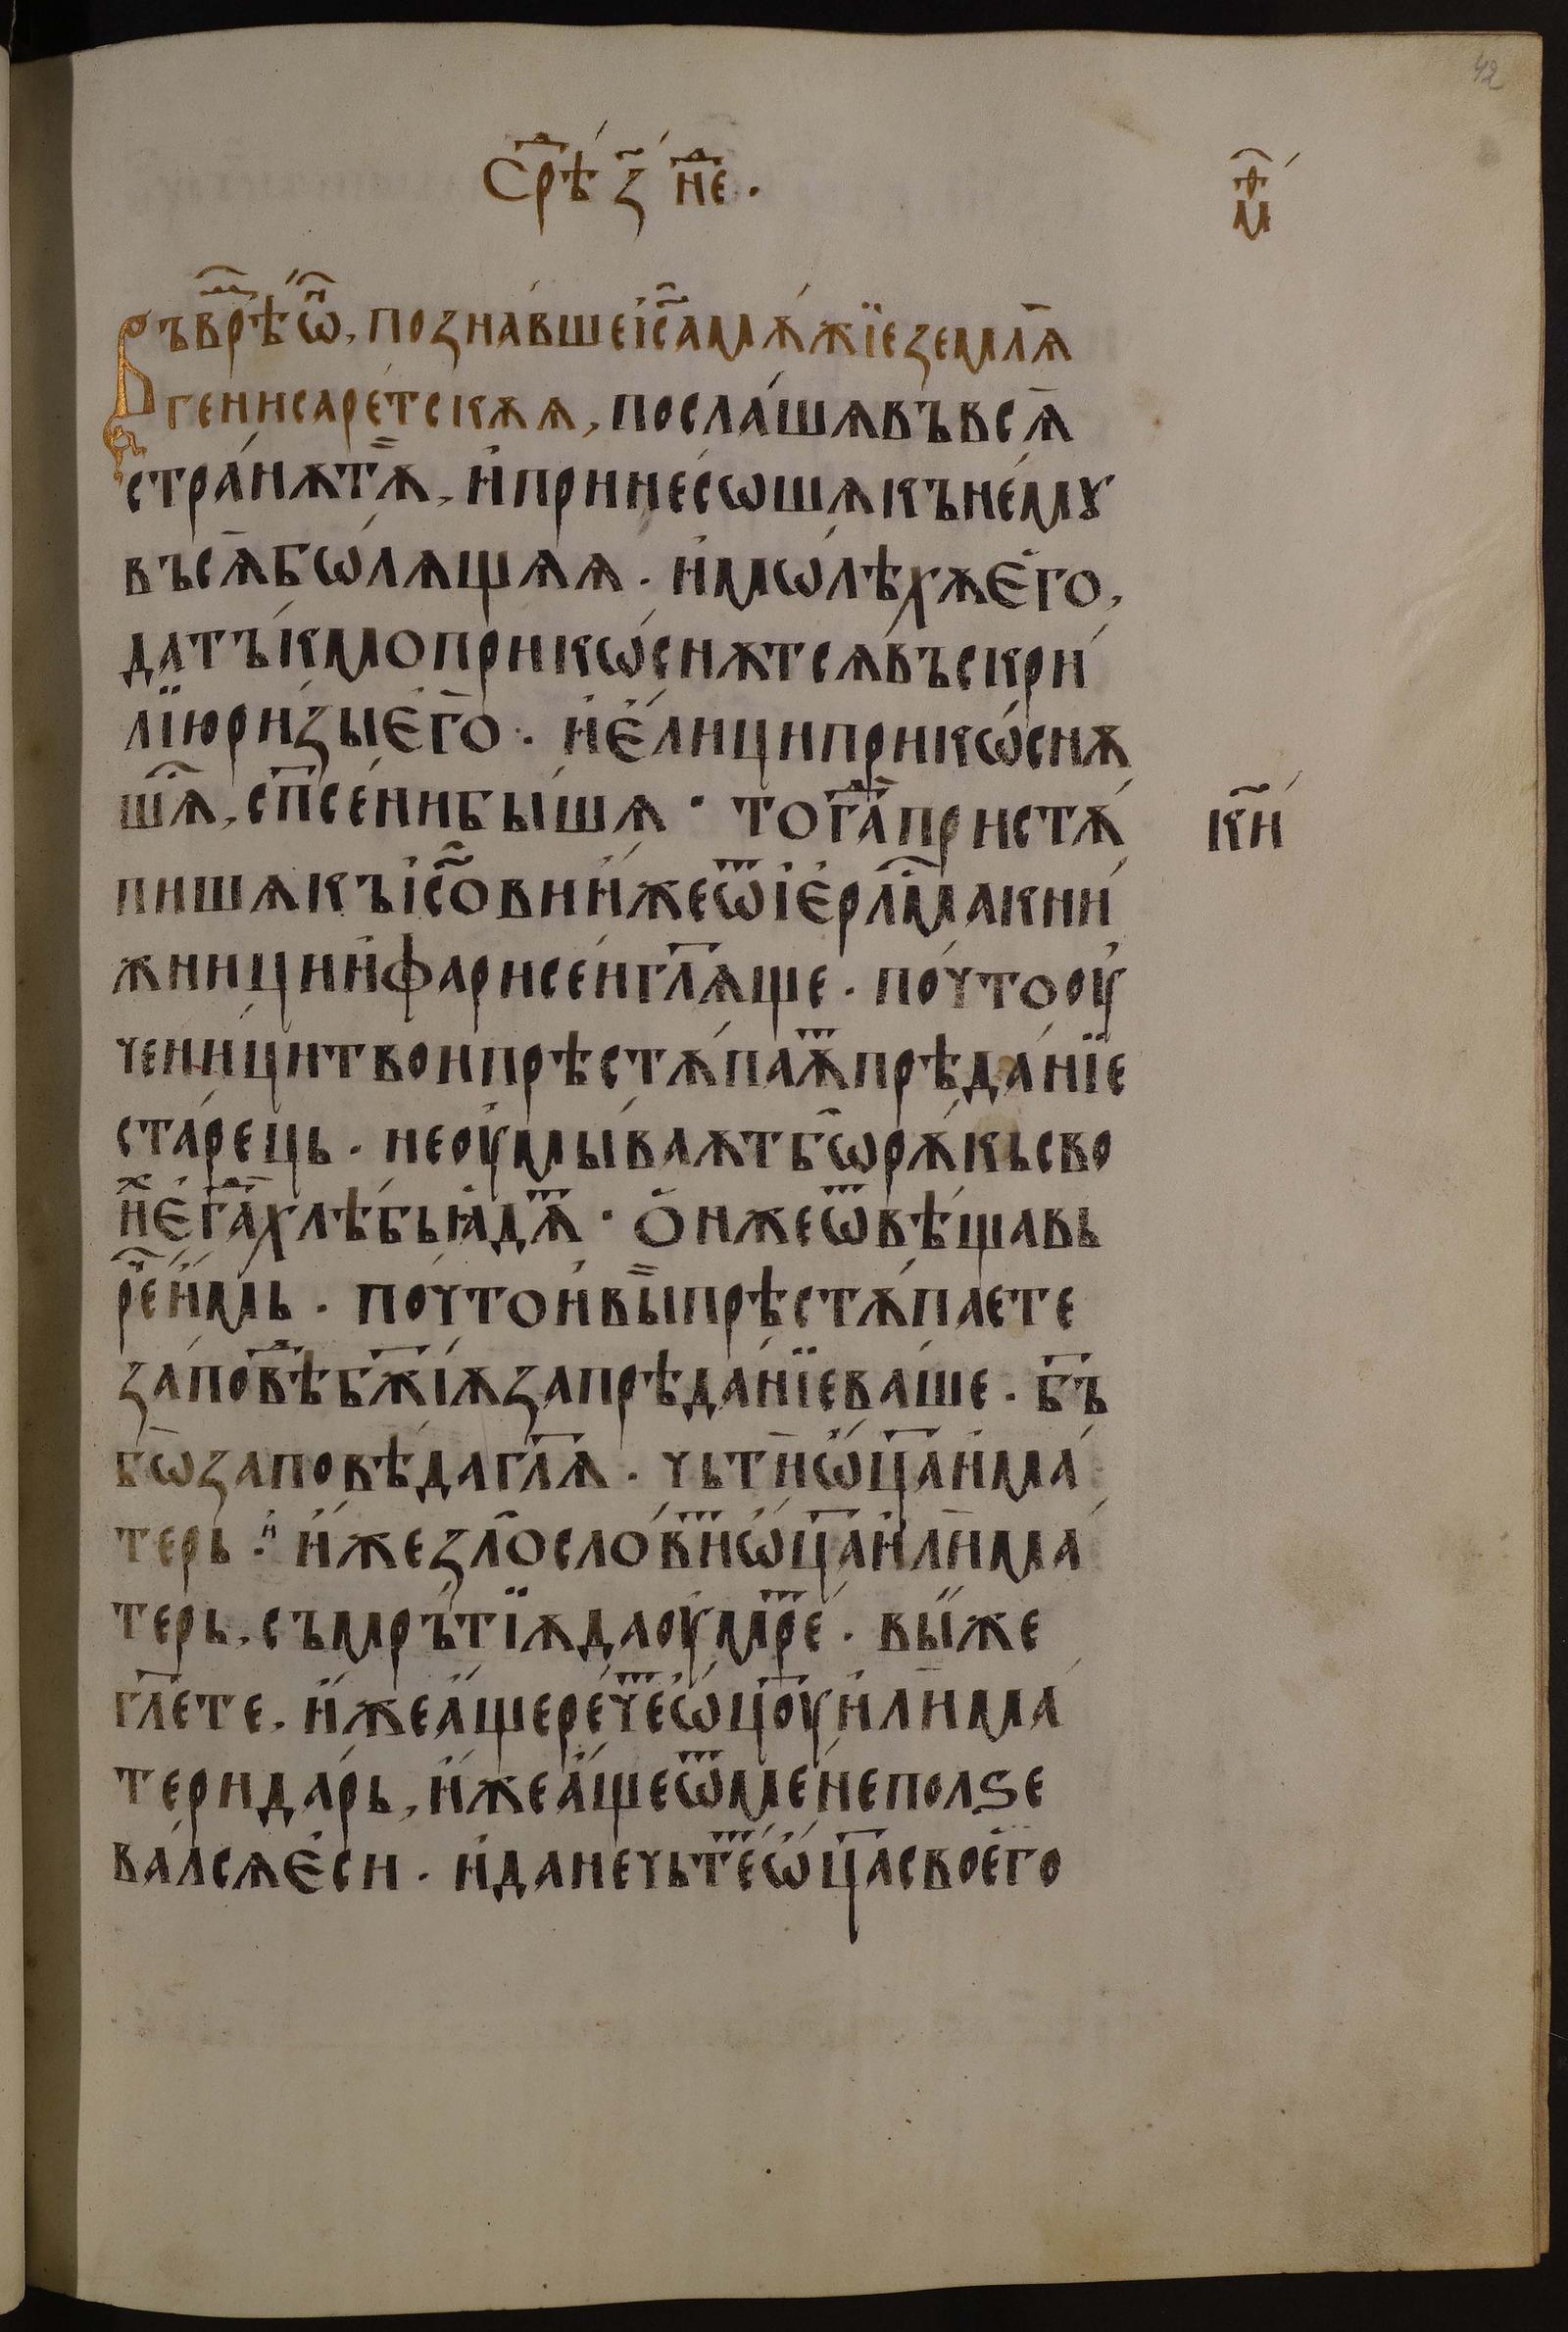 42
Срⷣѣ з҃ нⷣе.
мⷴ҇
Въ врⷨѣ ѡ҆́нⷪ, позна́вше і҆с҃а мѫ́жїе земл̑ѧ
генисаре́тскѫѧ, посла́шѧ въ всѧ̑
стра́нѫ тѫ̏, и҆ принесо́шѧ къ не́мꙋ
въсѧ̑ бѡ́лѧщѫѧ. и҆ мѡ́лѣхѫ є҆го̀,
да тъ́кмо прикѡ́снѫтсѧ въ скри́
лїю ри́зы є҆го̀. и҆ є҆́лици прикѡ́снѫ
шⷭ҇ѧ, сп҃се́ни бы́шѧ · тогⷣа́ пристѫ́
к҃и
пишѧ къ і҆с҃ови и҆́же ѿ і҆е҆рл҃и́ма кни́
жници и҆ фарисе́и гл҃ѧ́ще. по́что оу҆
чени́ци твои прѣстѫ́паѫⷮ прѣда́нїе
ста́рець. не оу҆мы́ваѫт бѡ рѫ́кь сво
иⷯ є҆гⷣа́ хлѣ́бь ꙗ҆дѫⷮ · О҆́н же ѿвѣ́щавь
реⷱ҇ и҆́мь. по́что и҆ вы̀ прѣстѫ́паете
за́повⷣѣ бж҃їѧ за прѣда́нїе ва́ше. бъ҃
бѡ заповѣ́да гл҃ѧ. чьтѝ ѡ҆ц҃а̀ и҆ ма́
терь ·҆и҆ и҆́же злосло́виⷮ ѡ҆ц҃а̀ и҆лѝ ма́
терь, съмръ́тїѫ да оу҆́мреⷮ. вы́ же
гл҃ете, и҆́же а҆́ще рече́ⷮ ѡ҆ц҃оу̀ и҆лѝ ма́
тери да́рь, и҆́же а҆́ще ѿ ме́не полѕе
ва́лсѧ є҆си. и҆ да не чьте́ⷮ ѡ҆ц҃а̀ свое҆го